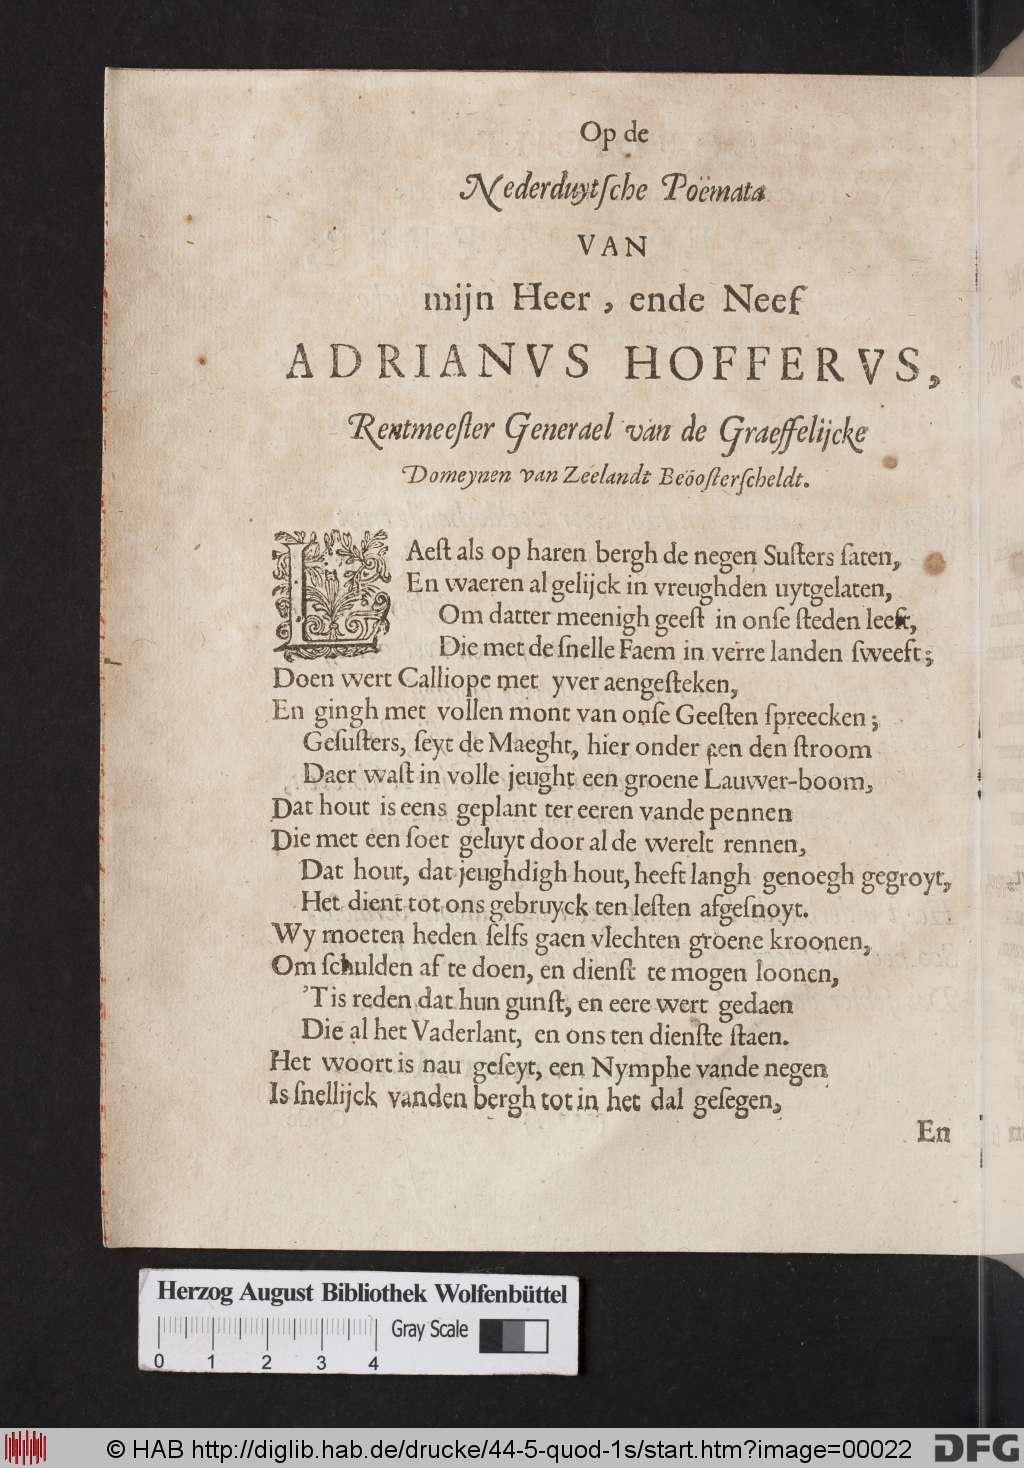 Op de
Nederduytſche Poëmata
VAN
mijn Heer, ende Neef
ADRIANVS HOFFERVS,
Rentmeeſter Generael van de Graeffelijcke
Domeynen van Zeelandt Beöoſterſcheldt.
LAeſt als op haren bergh de negen Suſters ſaten,
En waeren al gelijck in vreughden uytgelaten,
Om datter meenigh geeſt in onſe ſteden leeft,
Die met de ſnelle Faem in verre landen ſweeft;
Doen wert Calliope met yver aengeſteken,
En gingh met vollen mont van onſe Geeſten ſpreecken;
Geſuſters, ſeyt de Maeght, hier onder aen den ſtroom
Daer waſt in volle jeught een groene Lauwer-boom,
Dat hout is eens geplant ter eeren vande pennen
Die met een ſoet geluyt door al de werelt rennen,
Dat hout, dat jeughdigh hout, heeft langh genoegh gegroyt,
Het dient tot ons gebruyck ten leſten afgeſnoyt.
Wy moeten heden ſelfs gaen vlechten groene kroonen,
Om ſchulden af te doen, en dienſt te mogen loonen,
'T is reden dat hun gunſt, en eere wert gedaen
Die al het Vaderlant, en ons ten dienſte ſtaen.
Het woort is nau geſeyt, een Nymphe vande negen
Is ſnellijck vanden bergh tot in het dal geſegen,
En
Herzog August Bibliothek Wolfenbüttel
Gray Scale
0 1 2 3 4
© HAB http://diglib.hab.de/drucke/44-5-quod-1s/start.htm?image=00022
DFG